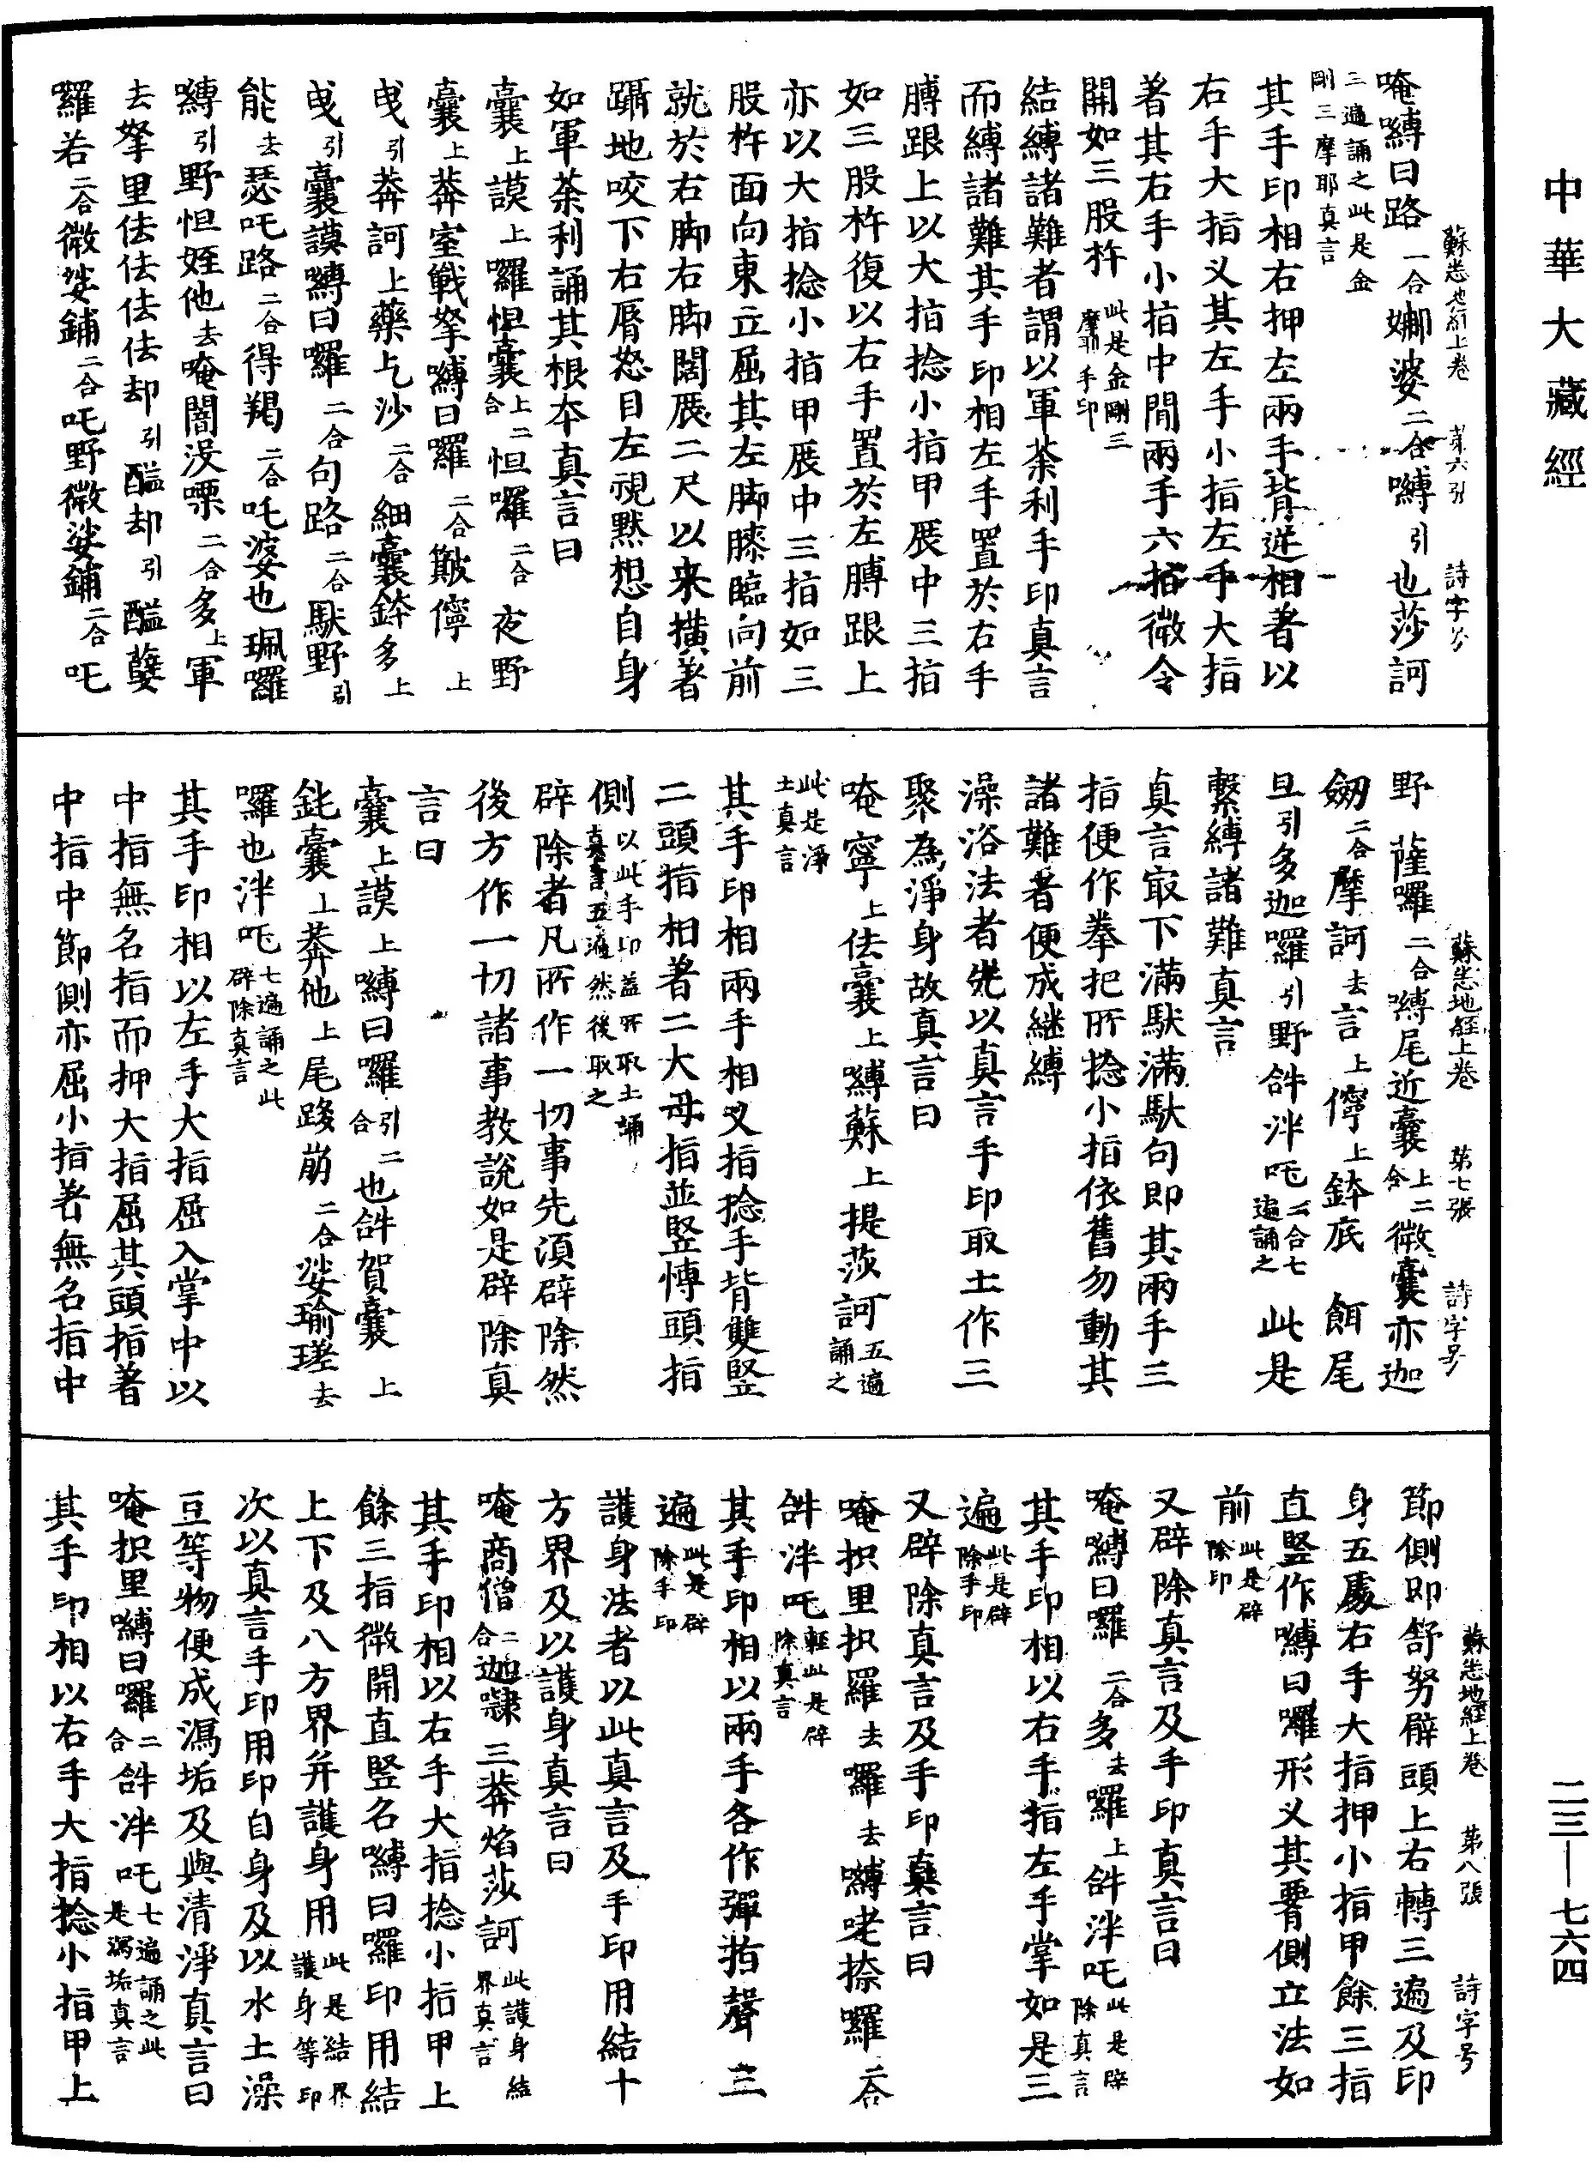 中華大藏經
二三—七六四
蘇悉地經上卷 第六張 詩字号
唵縛日路二合娜婆二合縛引也莎訶
三遍誦之此是金
剛三摩耶真言
其手印相右押左兩手背逆相著以
右手大指叉其左手小指左手大指
著其右手小指中間兩手六指微令
開如三股杵此是金剛三
摩耶手印
結縛諸難者謂以軍荼利手印真言
而縛諸難其手印相左手置於右手
膊跟上以大指捻小指甲展中三指
如三股杵復以右手置於左膊跟上
亦以大指捻小指甲展中三指如三
股杵面向東立屈其左脚膝臨向前
就於右脚右脚闊展二尺以来横著
躡地咬下右脣怒目左視黙想自身
如軍荼利誦其根本真言曰
囊上謨上囉怛囊上二合怛囉二合夜野
囊上莽室戰拏縛日囉二合簸儜上
曳引莽訶上藥乞沙二合細囊鉢多上
曳引囊謨縛日囉二合句路二合馱野引
能去瑟吒路二合得羯二合吒婆也珮囉
縛引野怛姪他去唵闇没㗚二合多上軍
去拏里佉佉佉佉却引醯却引醯蘖
囉若二合微娑鋪二合吒野微娑鋪二合吒
蘇悉地經上卷 第七張 詩字号
野薩囉二合縛尾近囊上二合微囊亦迦
劒二合摩訶去言上儜上鉢底餌尾
旦引多迦囉引野𤙖泮吒二合七
遍誦之此是
繫縛諸難真言
真言㝡下滿馱滿馱句即其兩手三
指便作拳把所捻小指依舊勿動其
諸難者便成継縛
澡浴法者先以真言手印取土作三
聚為淨身故真言曰
唵寧上佉囊上縛蘇上提莎訶五遍
誦之
此是淨
土真言
其手印相兩手相叉指捻手背雙竪
二頭指相著二大母指並竪愽頭指
側以此手印益所取土誦
真言五遍然後取之
辟除者凡所作一切事先湏辟除然
後方作一切諸事教說如是辟除真
言曰
囊上謨上縛日囉引二合也𤙖賀囊上
鈋囊上莽他上尾䟦崩二合娑瑜瑳去
囉也泮吒七遍誦之此
辟除真言
其手印相以左手大指屈入掌中以
中指無名指而押大指屈其頭指著
中指中節側亦屈小指著無名指中
蘇悉地經上卷 第八張 詩字号
節側即舒努臂頭上右轉三遍及印
身五處右手大指押小指甲餘三指
直竪作縛日囉形叉其署側立法如
前此是辟
除印
又辟除真言及手印真言曰
唵縛日囉二合多去囉上𤙖泮吒此是辟
除真言
其手印相以右手指左手掌如是三
遍此是辟
除手印
又辟除真言及手印真言曰
唵枳里枳羅去囉去縛咾捺囉二合
𤙖泮吒輕此是辟
除真言
其手印相以兩手各作彈指聲三
遍此是辟
除手印
護身法者以此真言及手印用結十
方界及以護身真言曰
唵商僧二合迦㘑三莽焰莎訶此護身結
界真言
其手印相以右手大指捻小指甲上
餘三指微開直竪名縛日囉印用結
上下及八方界并護身用此是結界
護身等印
次以真言手印用印自身及以水土澡
豆等物便成㵼垢及與清淨真言曰
唵枳里縛日囉二合𤙖泮吒七遍誦之此
是㵼垢真言
其手印相以右手大指捻小指甲上